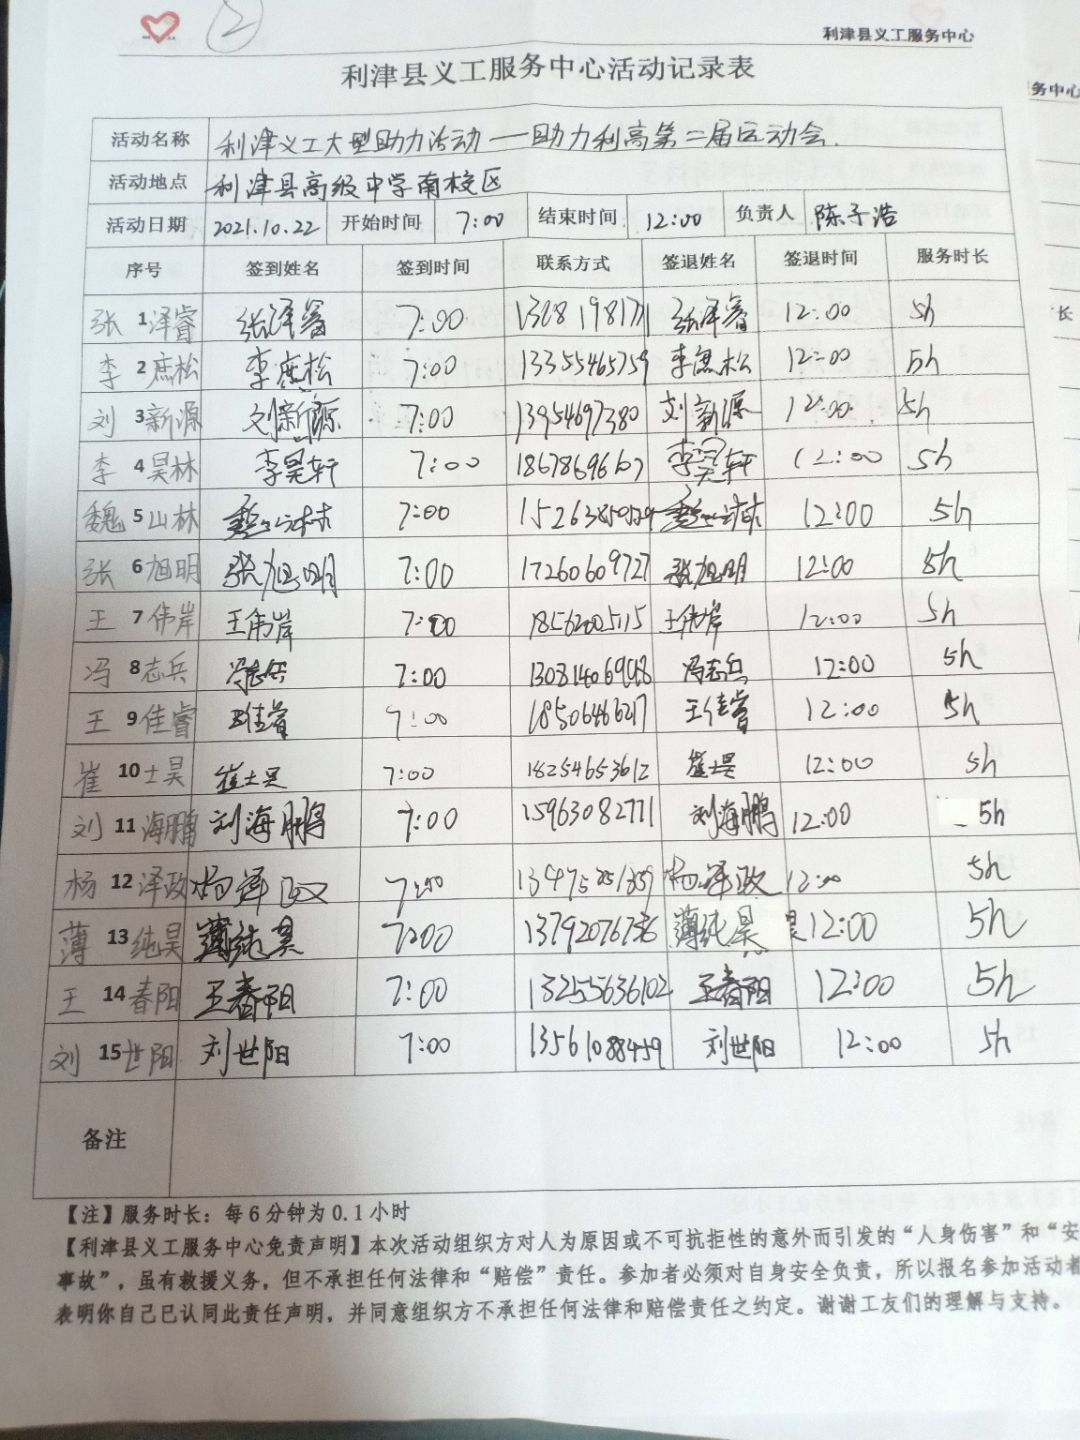 2
利津县义工服务中心
利津县义工服务中心活动记录表
务中心
活动名称 利津义工大型助力活动——助力利高第二届运动会.
活动地点 利津县高级中学南校区
活动日期 2021.10.22 开始时间 7:00 结束时间 12:00 负责人 陈子浩
序号 签到姓名 签到时间 联系方式 签退姓名 签退时间 服务时长
长
张 1 泽睿 张泽睿 7:00 张泽睿 12:00 5h
李 2 庶松 李庶松 7:00 13355465759 李庶松 12:00 5h
刘 3 新源 刘新源 7:00 13954697380 刘新源 12:00 5h
李 4 昊林 李昊轩 7:00 18678696167 李昊轩 12:00 5h
魏 5 山林 魏山林 7:00 魏山林 12:00 5h
张 6 旭明 张旭明 7:00 17260609727 张旭明 12:00 5h
王 7 伟岸 王伟岸 7:00 18562005115 王伟岸 12:00 5h
冯 8 志兵 冯志兵 7:00 冯志兵 12:00 5h
王 9 佳睿 王佳睿 7:00 18506466217 王佳睿 12:00 5h
崔 10 士昊 崔士昊 7:00 18254653612 崔士昊 12:00 5h
刘 11 海鹏 刘海鹏 7:00 15963082771 刘海鹏 12:00 5h
杨 12 泽政 杨泽政 7:00 杨泽政 12:00 5h
薄 13 纯昊 薄纯昊 7:00 13792076756 薄纯昊 昊 12:00 5h
王 14 春阳 王春阳 7:00 13255636102 王春阳 12:00 5h
刘 15 世阳 刘世阳 7:00 13561088459 刘世阳 12:00 5h
备注
【注】服务时长：每6分钟为0.1小时
【利津县义工服务中心免责声明】本次活动组织方对人为原因或不可抗拒性的意外而引发的“人身伤害”和“安
事故”，虽有救援义务，但不承担任何法律和“赔偿”责任。参加者必须对自身安全负责，所以报名参加活动者
表明你自己已认同此责任声明，并同意组织方不承担任何法律和赔偿责任之约定。谢谢工友们的理解与支持。